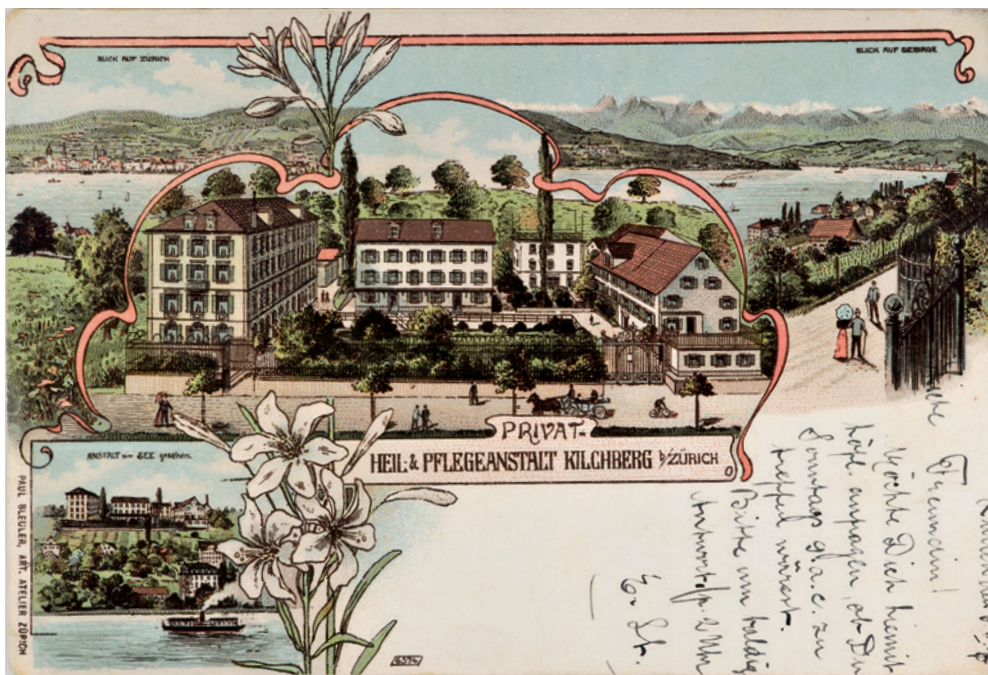 BLICK AUF ZÜRICH
BLICK AUF GEBIRGE
PRIVAT-
HEIL- & PFLEGEANSTALT KILCHBERG b/ZÜRICH
ANSTALT vom SEE gesehen.
PAUL BLEULER, ART. ATELIER ZÜRICH
Freundin!
Möchte Dich hiemit
höfl. anfragen, ob Du
Sonntags a. c. zu
treffen wärest.
Bitte um baldig
Antwort p. Uhr
E. St.